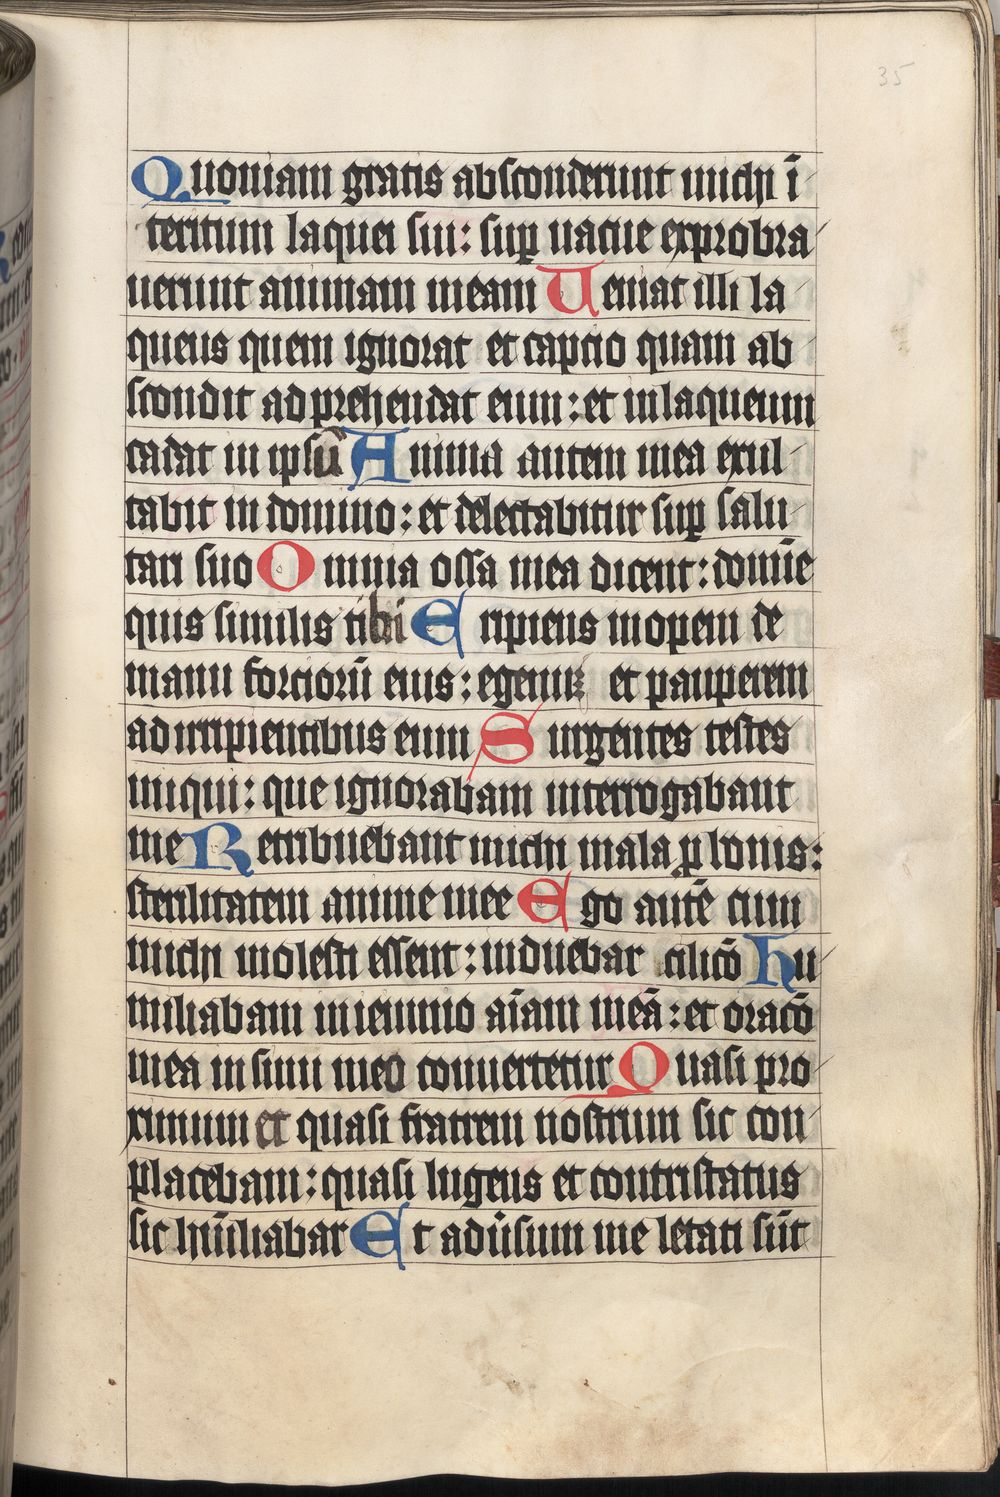 35
Quoniam gratis absconderunt michi ī
teritum laquei sui: sup̱ uacue exprobra
uerunt animam meam Ueniat illi la
queus quem ignorat et captio quam ab
scondit adprehendat eum: et inlaqueum
cadat in ipsū Anima autem mea exul
tabit in domino: et delectabitur sup̱ salu
tari suo Omnia ossa mea dicent: domīe
quis similis tibi Eripiens inopem de
manu forciorū eius: egenum et pauperem
adiripientibus eum Surgentes testes
iniqui: que ignorabam interrogabant
me Retribuebant michi mala ꝓ bonis:
sterilitatem anime mee Ego autē cum
michi molesti essent: induebar cilicō Hu
miliabam inieiunio aīam meā: et oracō
mea insinu meo conuertetur Quasi pro
ximum et quasi fratrem nostrum sic con
placebam: quasi lugens et contristatus
sic hūiliabar Et adūsum me letati sūt